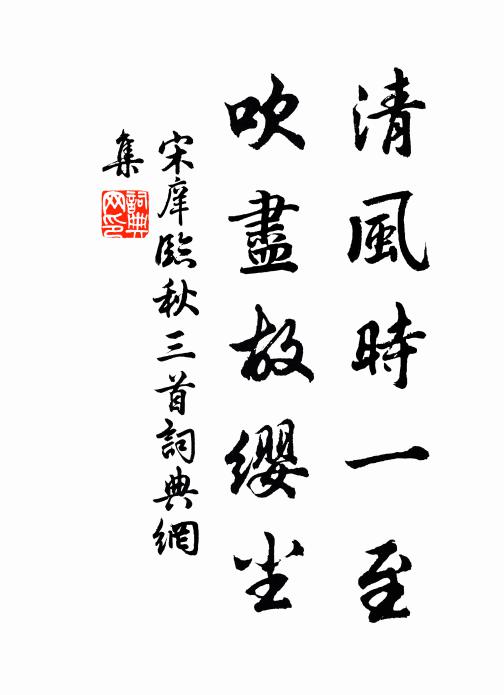 清風時一至
吹盡故纓尘
宋庠臨秋三首詞典網
集
詞典
网印